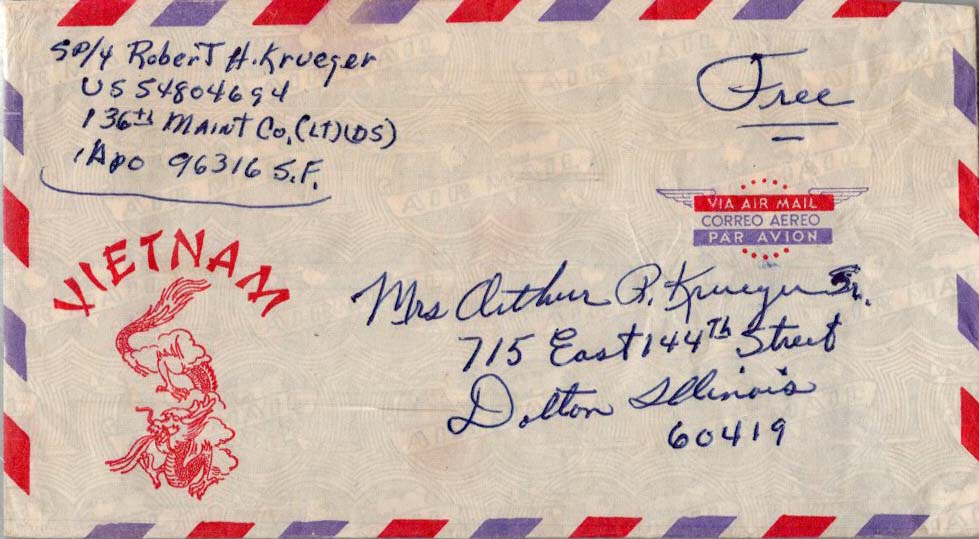 SP/4 Robert H. Krueger
US 54804694
136th Maint Co. (LT)(DS)
APO 96316 S.F.
Free
VIA AIR MAIL
CORREO AEREO
PAR AVION
VIETNAM
Mrs Arthur P. Krueger Sr.
715 East 144th Street
Dolton Illinois
60419